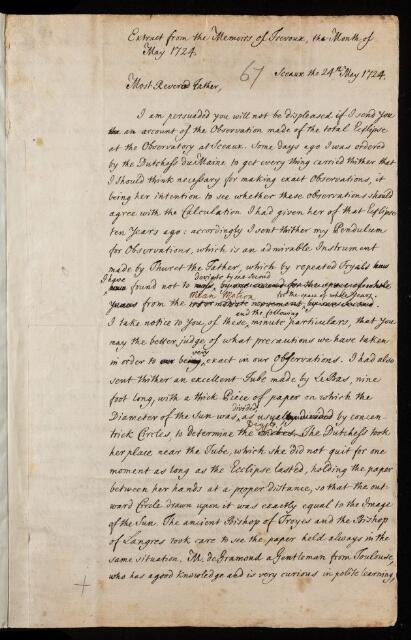 Extract from the Memoirs of Trevoux, the Month of
May 1724.
67 Sceaux the 24th May 1724.
Most Revered Father,
I am persuaded you will not be displeased if I send you
an account of the Observation made of the total Ecclipse
at the Observatory at Sceaux. Some days ago I was ordered
by the Dutchess du Maine to get every thing carried thither that
I should think necessary for making exact Observations, it
being her intention to see whether these observations should
agree with the Calculation I had given her of that Ecclipse
ten Years ago: accordingly I sent thither my Pendulum
for Observations, which is an admirable Instrument
made by Thuret the Father, which by repeated Tryals
I have
found not to
from the
Mean Motion
for the space of whole Years.
and the following
I take notice to you of these, minute particulars, that you
may the better judge of what precautions we have taken
very
in order to being exact in our Observations. I had also
sent thither an excellent Tube made by Le Bas, nine
foot long, with a thick Piece of paper on which the
divided
Diameter of the Sun was, as usually divided by concen
Digits
trick Circles, to determine the The Dutchess took
her place near the Tube, which she did not quit for one
moment as long as the Ecclipse lasted, holding the paper
between her hands at a proper distance, so that the out
ward Circle drawn upon it was exactly equal to the Image
of the Sun. The ancient Bishop of Troyes and the Bishop
of Langres took care to see the paper held always in the
same situation. M. de Gramond a Gentleman from Toulouse,
who has a good knowledge and is very curious in polite learning,